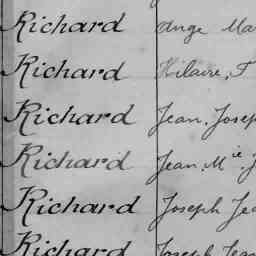 Richard Ange Ma
Richard Hilaire, F
Richard Jean, Josep
Richard Jean, M ie J
Richard Joseph Jea
Richard Joseph Jean